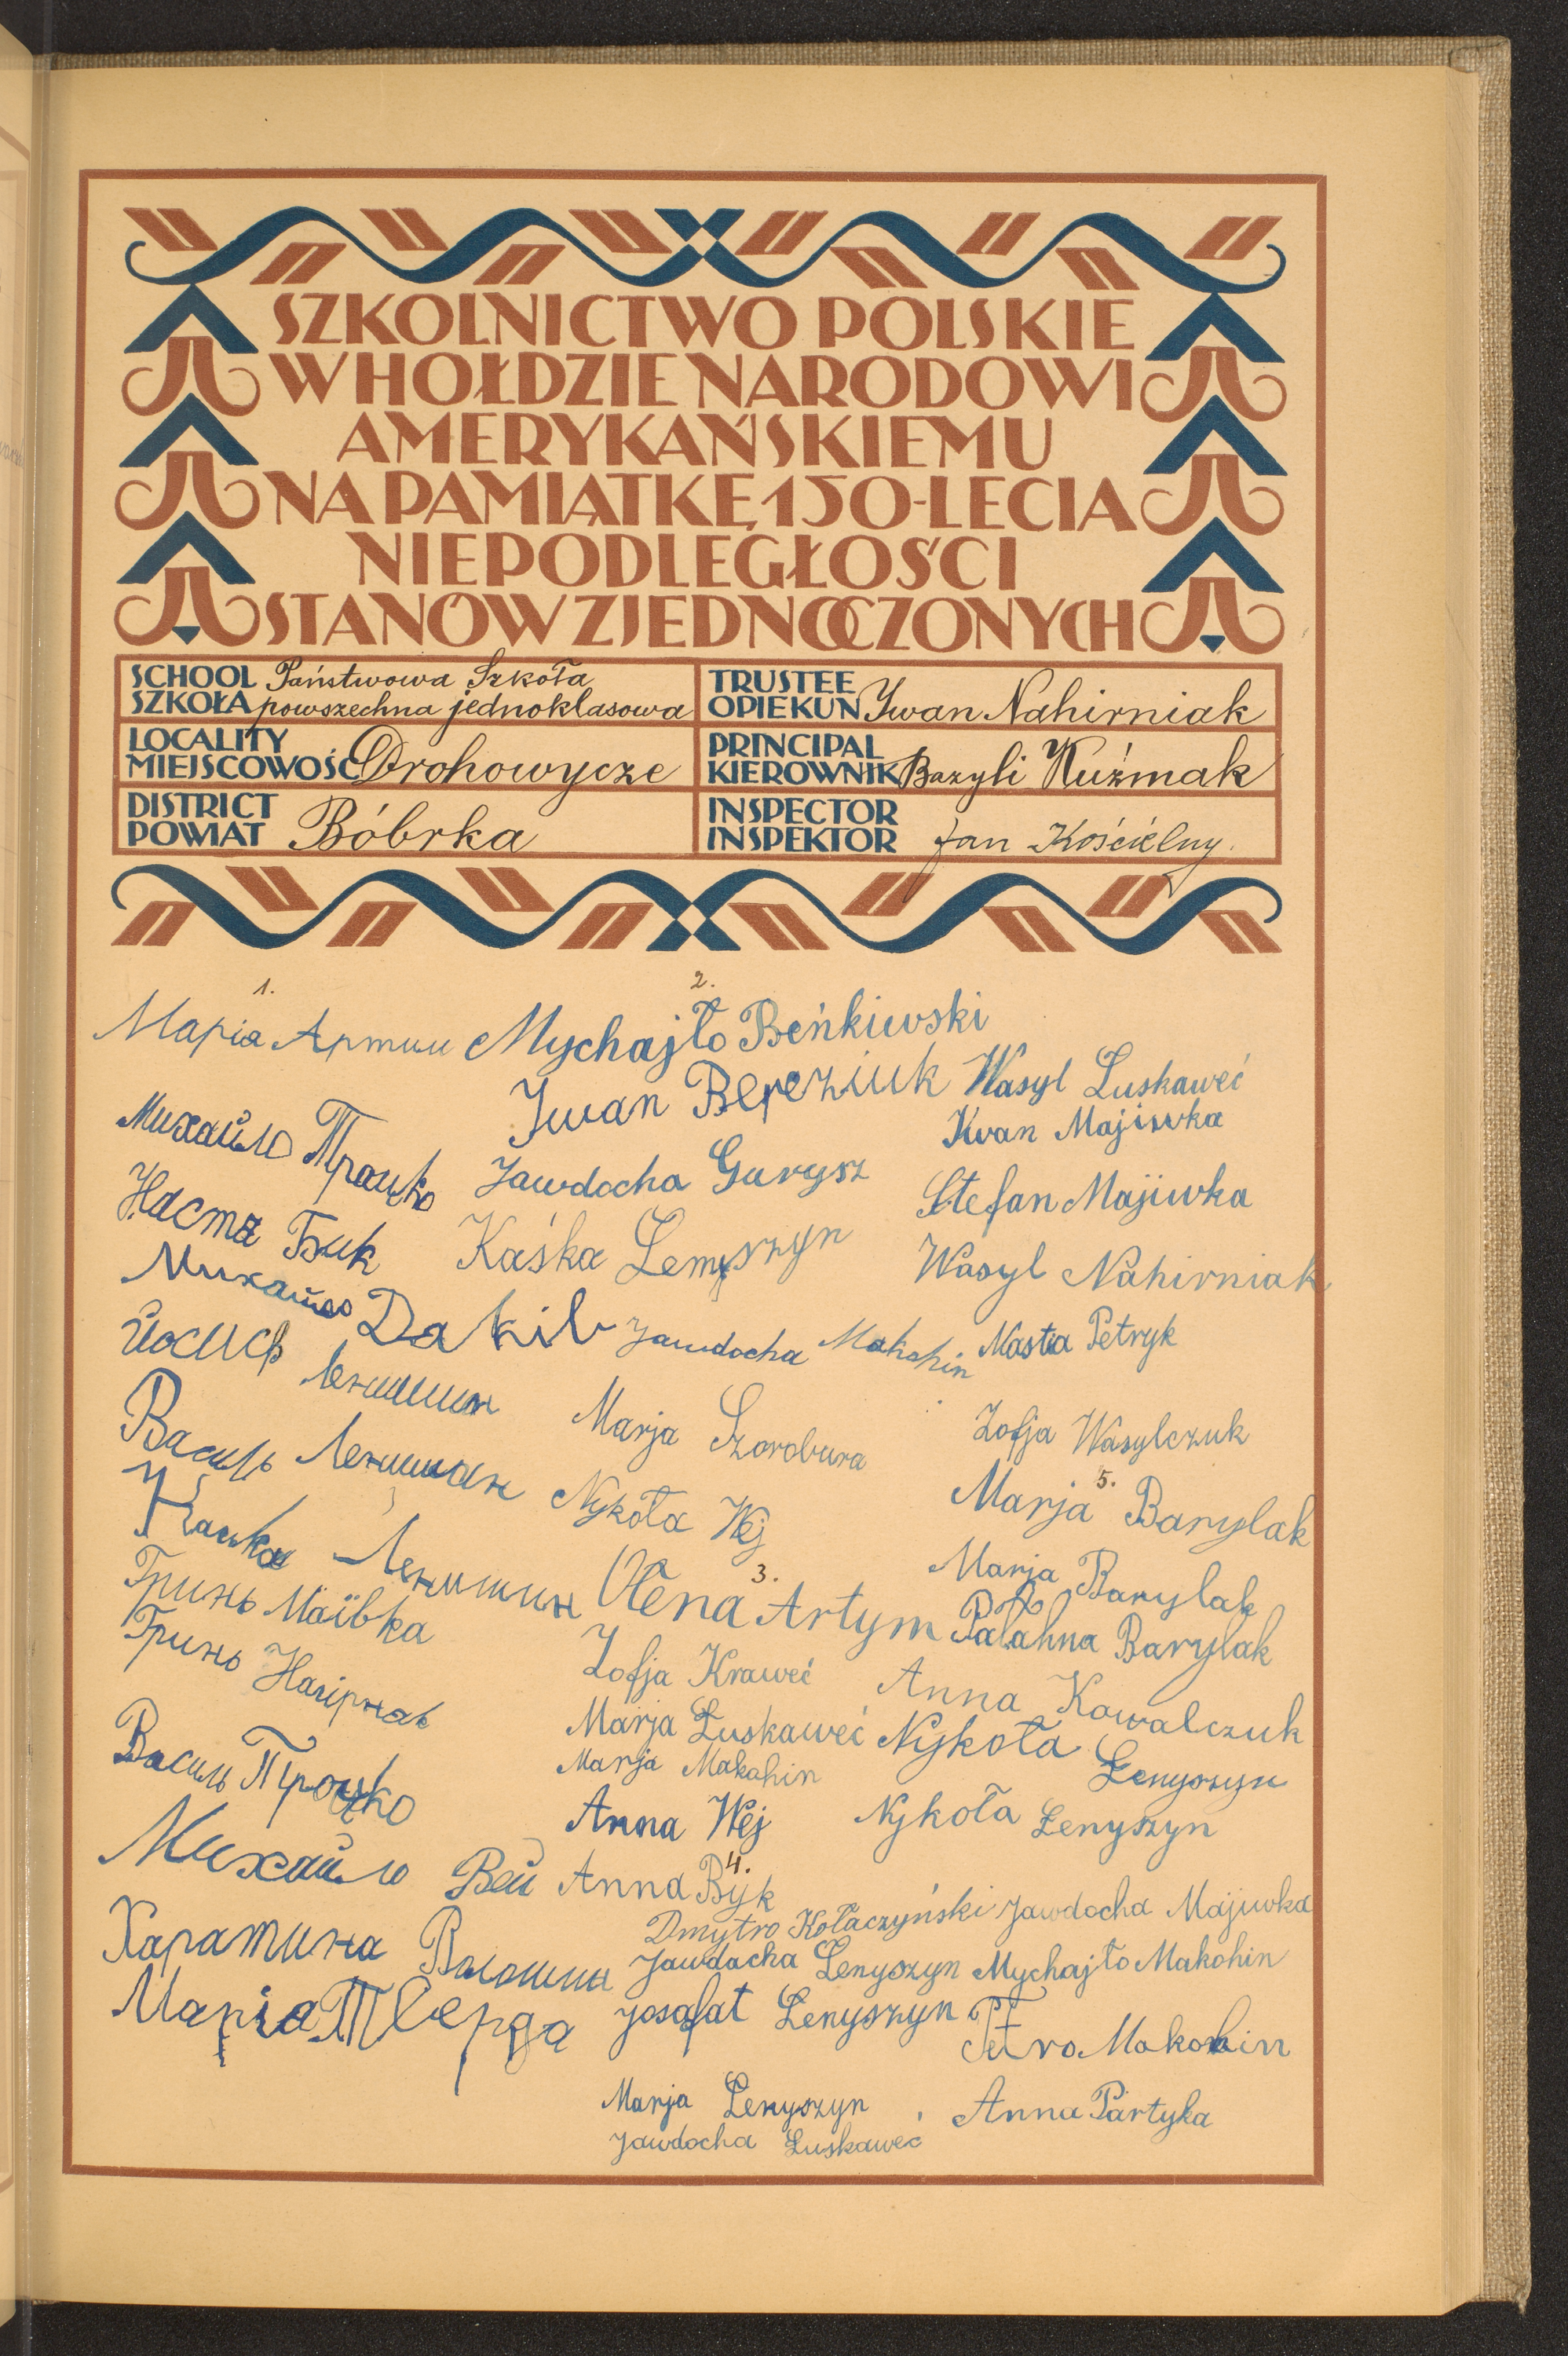 SZKOLNICTWO POLSKIE
W HOŁDZIE NARODOWI
AMERYKAŃSKIEMU
NA PAMIĄTKĘ 150-LECIA
NIEPODLEGŁOŚCI
STANÓW ZJEDNOCZONYCH
SCHOOL
SZKOŁA
Państwowa Szkoła
powszechna jednoklasowa
TRUSTEE
OPIEKUN
Iwan Nahirniak
LOCALITY
MIEJSCOWOŚĆ
Drohowycze
PRINCIPAL
KIEROWNIK
Bazyli Kuźmak
DISTRICT
POWIAT
Bóbrka
INSPECTOR
INSPEKTOR
Jan Kościelny.
1.
Марія Артим
Михайло Процко
Настя Бик
Михайло Dakiв
Йосиф Лениш​ин
Василь Ленишин
Каська Ленишин
Гринь Маївка
Гринь Нагірняк
Василь Процко
Михайло Вей
Харатина Волошин
Марія Тверда
2.
Mychajło Beńkiwski
Iwan Bereziuk
Jawdocha Gurysz
Kaśka Lenyszyn
Jawdocha Makohin
Marja Szorobura
Nykoła Wej
3.
Ołena Artym
Zofja Kraweć
Marja Łuskaweć
Marja Makohin
Anna Wej
4.
Anna Byk
Dmytro Kołaczyński
Jawdocha Lenyszyn
Josafat Lenyszyn
Marja Lenyszyn
Jawdocha Łuskaweć
Wasyl Łuskaweć
Iwan Majiwka
Stefan Majiwka
Wasyl Nahirniak
Nastia Petryk
Zofja Wasylczuk
5.
Marja Barylak
Marja Barylak
Palahna Barylak
Anna Kowalczuk
Nykoła Lenyszyn
Nykoła Lenyszyn
Jawdocha Majiwka
Mychajło Makohin
Petro Makohin
Anna Partyka